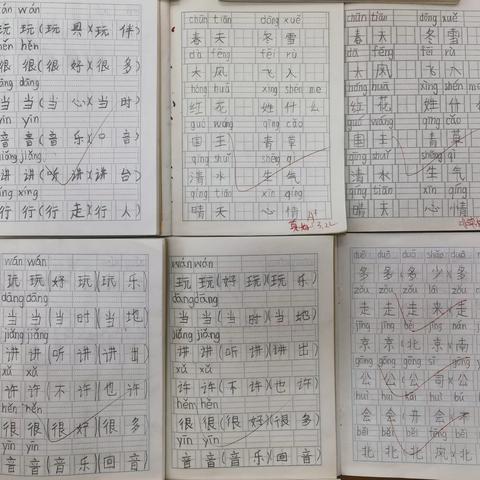 wán wán
玩 玩(玩 具)(玩 伴)
hěn hěn
很 很(很 好)(很 多)
dāng dāng
当 当(当 心)(当 时)
yīn yīn
音 音(音 乐)(口 音)
jiǎng jiǎng
讲 讲(听 讲)(讲 台)
xíng xíng
行 行(行 走)(行 人)
chūn tiān dōng xuě
春 天 冬 雪
dà fēng fēi rù
大 风 飞 入
hóng huā xìng shén me
红 花 姓 什 么
guó wáng qīng cǎo
国 王 青 草
qīng shuǐ shēng qì
清 水 生 气
qíng tiān xīn qíng
晴 天 心 情
3.22
chūn tiān dōng xuě
春 天 冬 雪
dà fēng fēi rù
大 风 飞 入
hóng huā xìng shén me
红 花 姓 什
guó wáng qīng cǎo
国 王 青 草
qīng shuǐ shēng qì
清 水 生 气
qíng tiān xīn qíng
晴 天 心 情
wán wán
玩 玩(好 玩)(玩 乐)
dāng dāng
当 当(当 时)(当 地)
jiǎng jiǎng
讲 讲(听 讲)(讲 出)
xǔ xǔ
许 许(不 许)(也 许)
hěn hěn
很 很(很 好)(很 多)
yīn yīn
音 音(音 乐)(画 音)
wán wán
玩 玩(好 玩)(玩 乐)
dāng dāng
当 当(当 时)(当 地)
jiǎng jiǎng
讲 讲(听 讲)(讲 出)
xǔ xǔ
许 许(不 许)(也 许)
hěn hěn
很 很(很 好)(很 多)
yīn yīn
音 音(音 乐)(画 音)
duō duō shǎo duō
多 多(多 少)多
zǒu zǒu lái zǒu
走 走(走 来 走
jīng běi jīng nán
京 京(北 京)南
gōng gōng sī gōng
公 公(公 司)公
huì kāi huì
会 会(开 会
běi běi fēng běi
北 北(北 风)北